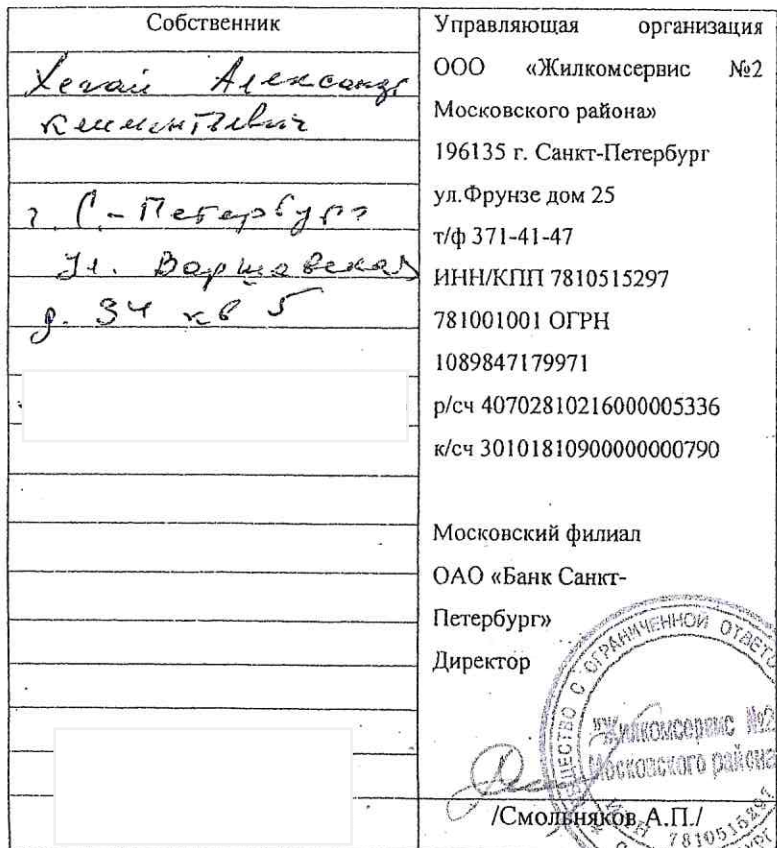 Собственник
Хегай Александр
Климентьевич
г. С-Петербург
ул. Варшавская
д. 34 кв 5
Управляющая организация
ООО «Жилкомсервис №2
Московского района»
196135 г. Санкт-Петербург
ул.Фрунзе дом 25
т/ф 371-41-47
ИНН/КПП 7810515297
781001001 ОГРН
1089847179971
р/сч 40702810216000005336
к/сч 30101810900000000790
Московский филиал
ОАО «Банк Санкт-
Петербург»
Директор
/Смольняков А.П./
ОБЩЕСТВО С ОГРАНИЧЕННОЙ
"Жилкомсервис №2
Московского района
ИНН 7810515297